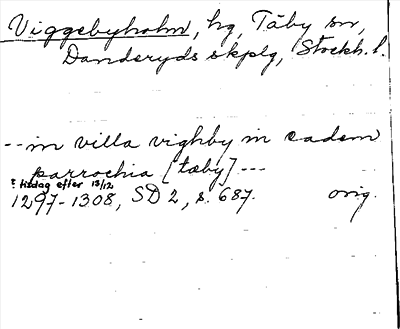 Viggebyholm, hg, Täby sn,
Danderyds skplg, Stockh. l.
-- in villa vighby in eadem
parrochia [tæby] ---
? tisdag efter 13/12
1297-1308, SD 2, s. 687. orig.